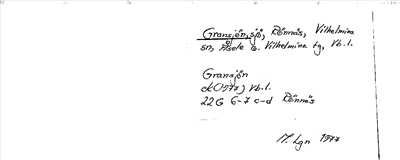 Gransjön, sjö, Rönnäs, Vilhelmina
sn, Åsele o. Vilhelmina tg, Vb.l.
Gransjön
ek(1977) Vb.l.
22G 6-7 c-d Rönnäs
M. Lgn 1977